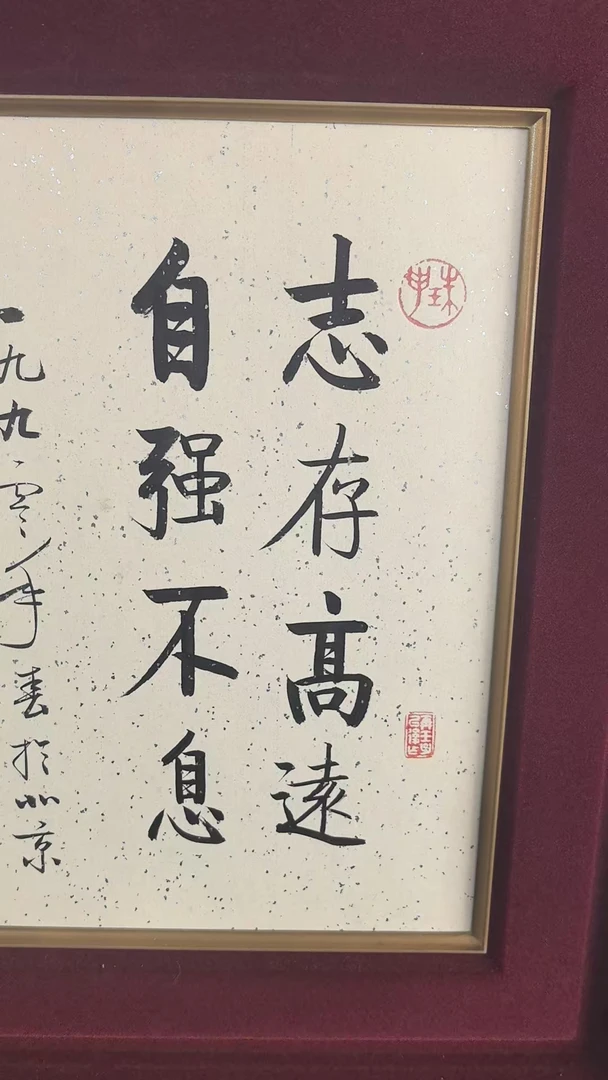 志存高遠
自强不息
一九九零年春於北京